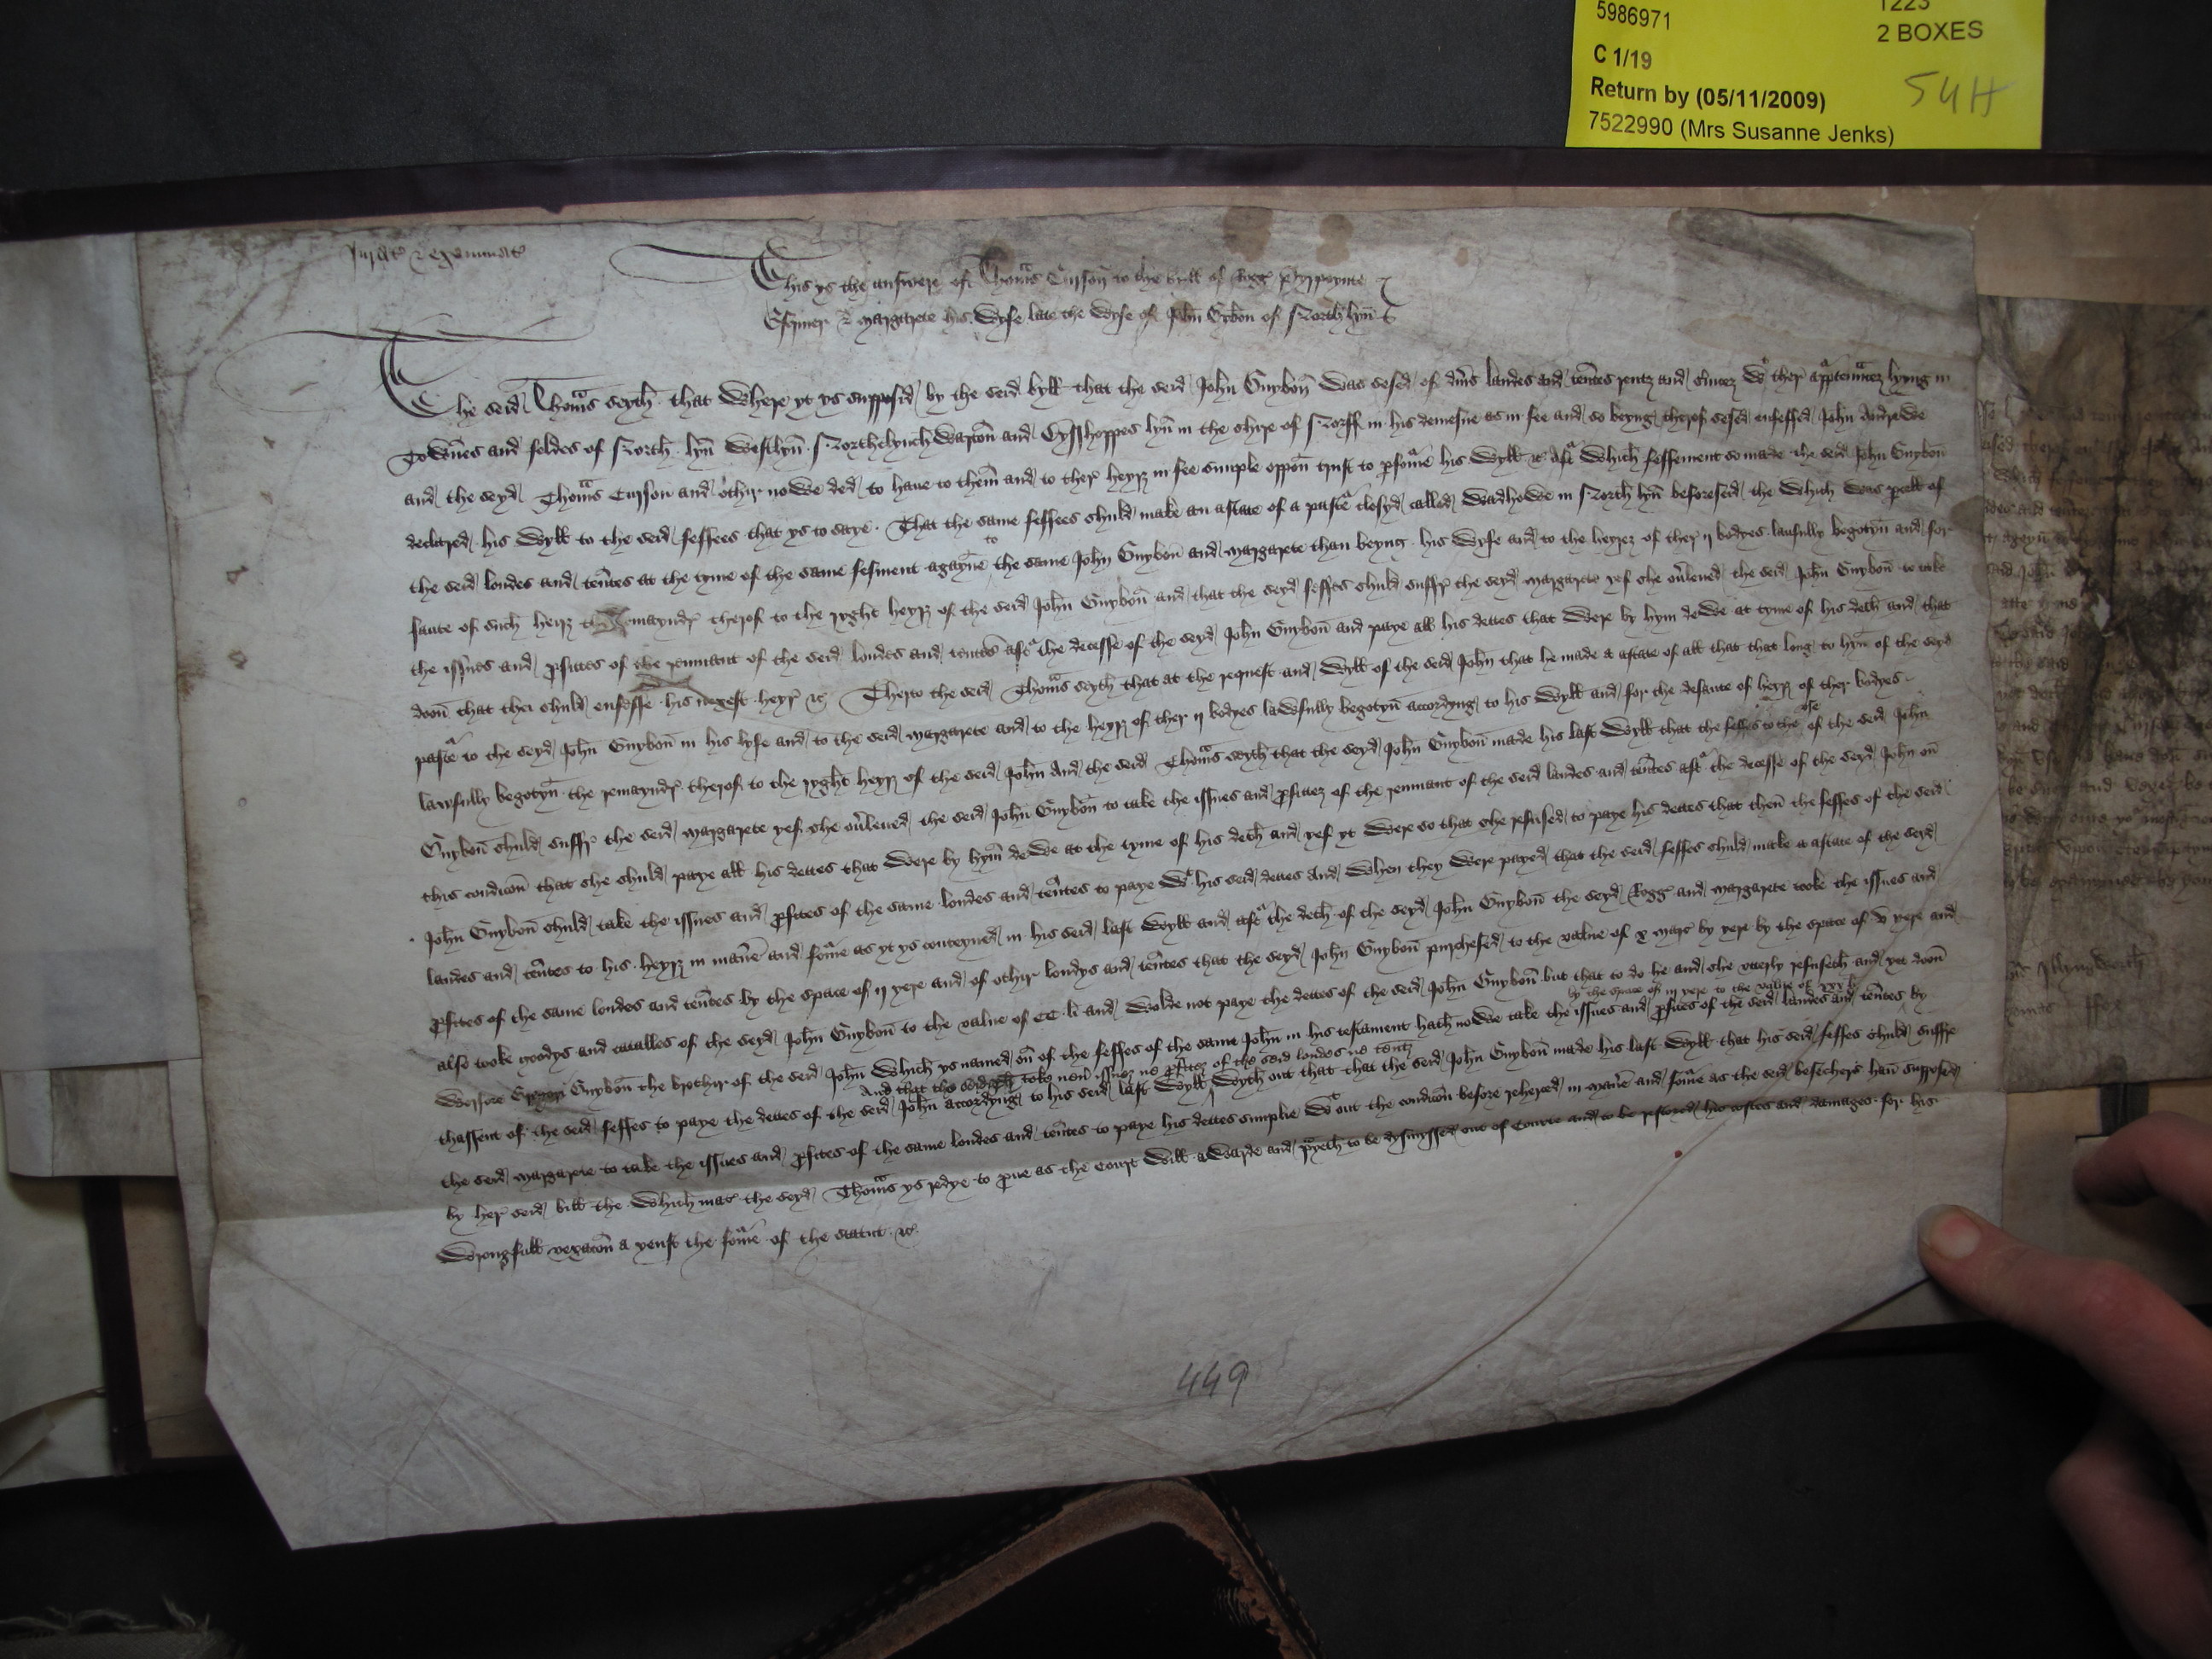 5986971 1223
2 BOXES
C 1/19
Return by (05/11/2009) 54H
7522990 (Mrs Susanne Jenks)
Jurat' & examinat'
This ys the answere of Thomas Cursoñ to the bill of Rogg' Pyrpoynte
Esquier & Margarete his Wyfe late the Wyfe of John Gybon of North lyñ
The seid Thomas seyth that Where yt ys supposid by the seid byll that the seid John Guyboñ Was sesed of dm̃s landes and teñtes rentz and  Wt ther app'tenncez lyng in
Towñes and feldes of North lyñ Westlyñ Northelynch Wattoñ and Bysshoppes lyñ in the shire of Norff in his demesne as in fee and so beyng therof sesed enfeffed John Andrewe
and the seyd Thomas Cursson and othir nowe ded to haue to them and to ther heyrz in fee simple oppoñ trust to p'fo'me his Wyll &c Aft' Which feffement so made the seid John Guyboñ
declared his Wyll to the seid feffees that ys to saye That the same feffees shuld make an astate of a past'e closyd called Wadhowe in North lyñ beforeseid the Which Was p'cell of
the seid londes and teñtes at the tyme of the same fefment agayñe to the same John Guyboñ and Margarete than beyng his Wyfe and to the heyrez of ther ij bodyes laufully begotyñ and for
faute of such heirz the remayndr' therof to the ryght heyrz of the seid John Guyboñ and that the seyd feffes shuld suffr' the seyd Margarete yef she ou'leued the seid John Guyboñ to take
the issues and p'fittes of the remnant of the seid londes and tentes aft' the decesse of the seyd John Guyboñ and paye all his dettes that Were by hym deWe at tyme of his deth and that
dooñ that thei shuld enfeffe his nexest heyr' &c Therto the seid Thomas seyth that at the request and Wyll of the seid John that he made a astate of all that that long to hym of the seyd
past'e to the seyd John Guyboñ in his lyfe and to the seid Margarete and to the heyrz of ther ij bodyes laWfully begotyñ accordyng to his Wyll and for the defaute of heyrz of ther bodyes
lawfully begotyñ the remayndr' therof to the ryght heyrz of the seid John And the seid Thomas seyth that the seyd John Guyboñ made his last Wyll that the feffes to the vse of the seid John
Guyboñ shuld suffr' the seid Margarete yef she ou'leued the seid John Guyboñ to take the issues and p'fittez of the remnant of the seid landes and teñtes aft' the decesse of the seyd John oñ
this condicoñ that she shuld paye all his dettes that Were by hym deWe at the tyme of his deth and yef yt Were so that she refused to paye his dettes that theñ the feffes of the seid
John Guyboñ shuld take the issues and p'fites of the same londes and teñtes to paye Wt his seid dettes And When they Were payed that the seid feffes shuld make a astate of the seyd
landes and teñtes to his heyrz in mañe and fo'me as yt ys conteyned in his seid last Wyll and aft' the deth of the seyd John Guyboñ the seyd Rogg' and Margarete tooke the issues and
p'fites of the same londes and teñtes by the space of ij yere and of othir londys and teñtes that the seyd John Guyboñ purchesed to the value of x marc by yere by the space of v yere and
also tooke goodys and catalles of the seyd John Guyboñ to the value of CC li and Wolde not paye the dettes of the seid John Guyboñ but that to do he and she vtterly refuseth and yet dooñ
by the space of iij yere to the value of xxx li
Werfore Guyboñ the brothir of the seid John Which ys named oñ of the feffes of the same John in his testament hath noWe take the issues and p'fites of the seid landes and teñtes by
And that the seid toke non issuez ne p'fitez of the seid londes ne tentz
thassent of the seid feffes to paye the dettes of the seid John accordyng to his seid last Wyll Wyth out that that the seid John Guyboñ made his last Wyll that his seid feffes shuld suffre
the seid Margarete to take the issues and p'fites of the same londes and teñtes to paye his dettes simplie Wt out the condicoñ before reherced in mañe and fo'me as the seid besechers hañ supposed
by her' seid bill the Which mat' the seyd Thomas ys redye to p'ue as the Court Will aWarde and p'yeth to be dysmyssed out of Courte and to be restored his costes and damages for his
Wrongfull vexacoñ a yenst the fo'me of the statut &c
449